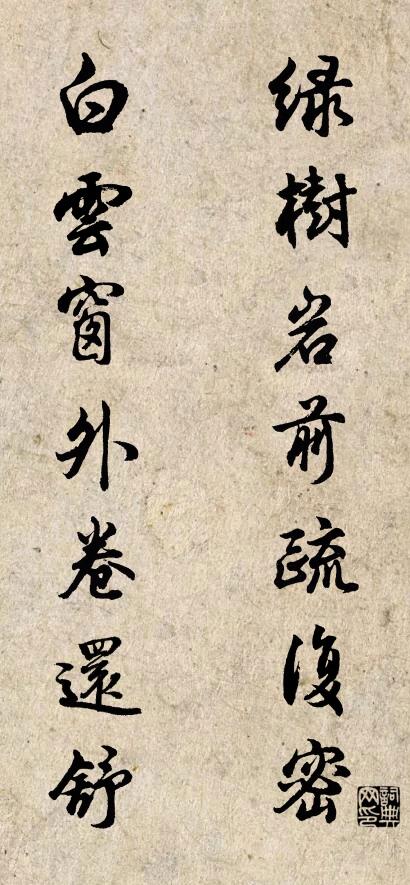 緑樹岩前疏復密
白雲窗外卷還舒
詞典网印